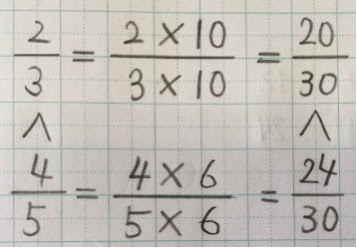 2/3 = (2 × 10)/(3 × 10) = 20/30
∧ ∧
4/5 = (4 × 6)/(5 × 6) = 24/30